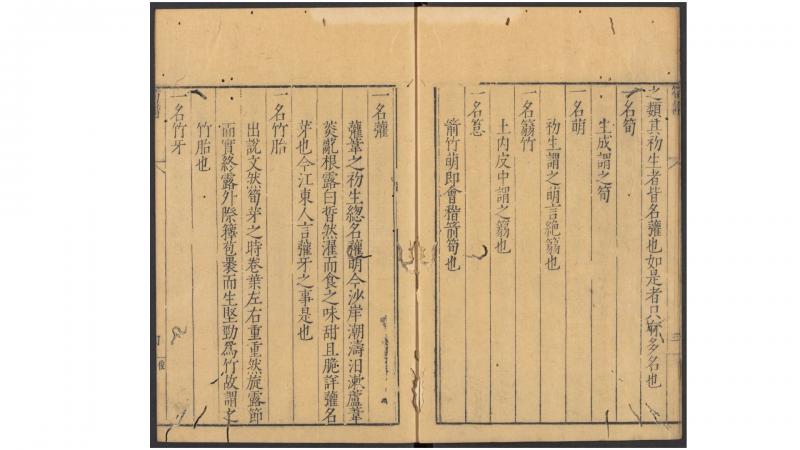 之類其初生者皆名虇也如是者只麻多名也
一名筍
生成謂之筍
一名萌
初生謂之萌言絶篛也
一名篛竹
土内皮中謂之篛也
一名䈚
箭竹萌即會稽箭筍也
一名虇
虇葦之初生緫名虇萌今沙岸潮濤汨漱蘆葦
菼亂根露白晢然濯而食之味甜且脆詳虇名
芽也今江東人言虇牙之事是也
一名竹胎
出說文然筍芽之時卷葉左右重重然旋露節
而實終露外際籜苞裹而生堅勁為竹故謂之
竹胎也
一名竹牙